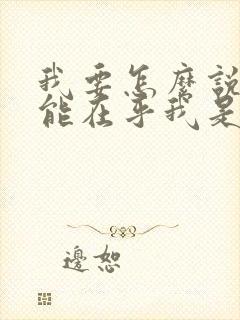 我要怎麼說
能在乎我是
邊恕